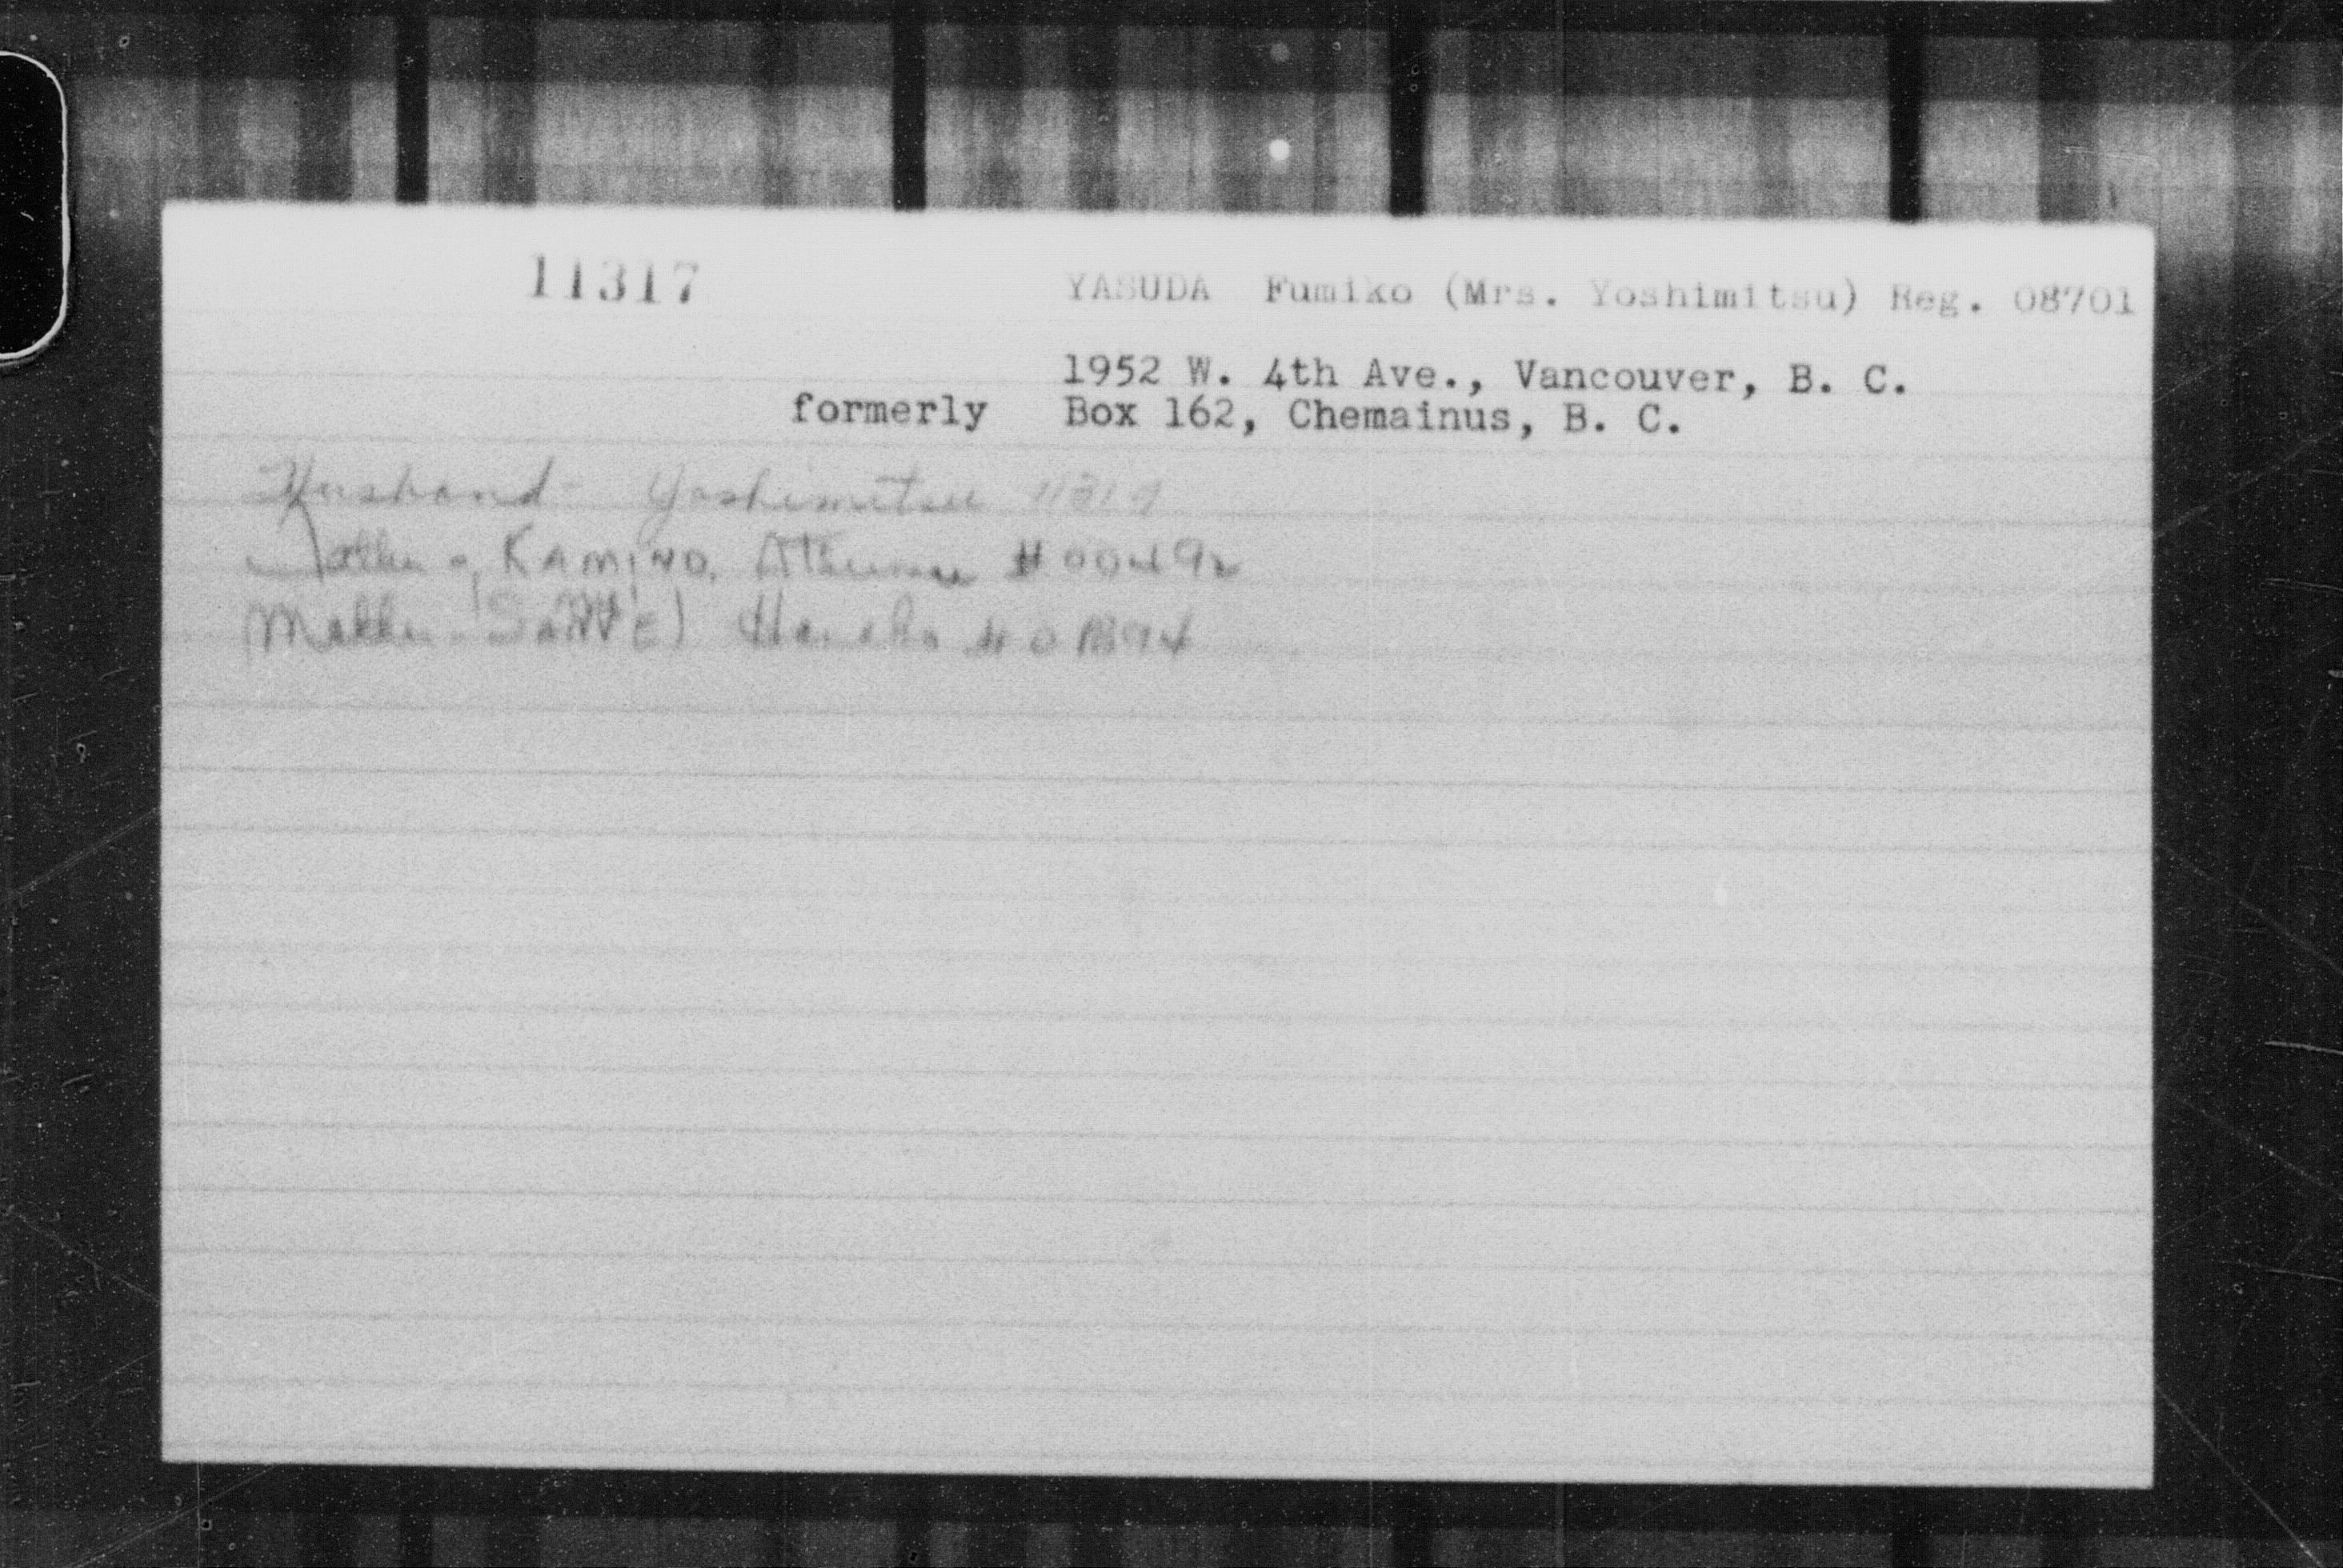 11317 YASUDA Fumiko (Mrs. Yoshimitsu) Reg. 08701
1952 W. 4th Ave., Vancouver, B. C.
formerly Box 162, Chemainus, B. C.
Husband - Yoshimitsu 11319
Father - KAMINO, # 00492
Mother - (SAME) Hanako #